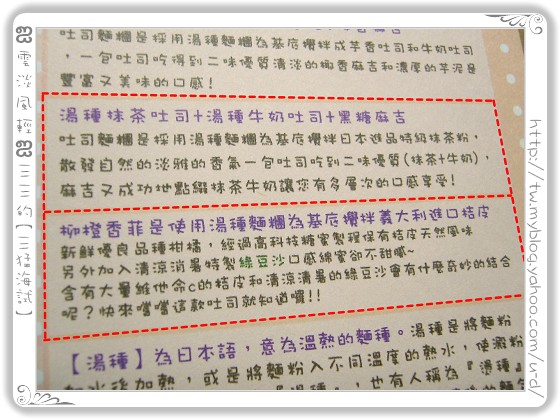 吐司麵糰是採用湯種麵糰為基底攪拌成芋香吐司和牛奶吐司
，一包吐司吃得到二味優質清淡的椰香麻吉和濃厚的芋泥是
豐富又美味的口感！
湯種抹茶吐司+湯種牛奶吐司+黑糖麻吉
吐司麵糰是採用湯種麵糰為基底攪拌日本進品特級抹茶粉，
散發自然的淡雅的香氣一包吐司吃到二味優質(抹茶+牛奶)，
麻吉又成功地點綴抹茶牛奶讓您有多層次的口感享受！
柳橙香菲是使用湯種麵糰為基底攪拌義大利進口桔皮
新鮮優良品種柑橘，經過高科技糖蜜製程保有桔皮天然風味
另外加入清涼消暑特製綠豆沙口感綿蜜卻不甜膩~
含有大量維他命c的桔皮和清涼清暑的綠豆沙會有什麼奇妙的結合
呢？快來嚐嚐這款吐司就知道囉!!
【湯種】為日本語，意為溫熱的麵種。湯種是將麵粉
加水後加熱，或是將麵粉入不同溫度的熱水，使澱粉
，也有人稱為『湯種』
雲淡風輕
三三三的【三猛海試】
http://tw.myblog.yahoo.com/u-d/